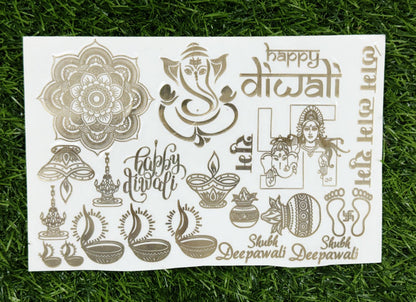 happy
diwali
लाभ लाभ शुभ
happy
diwali
Shubh
Deepawali
Shubh
Deepawali